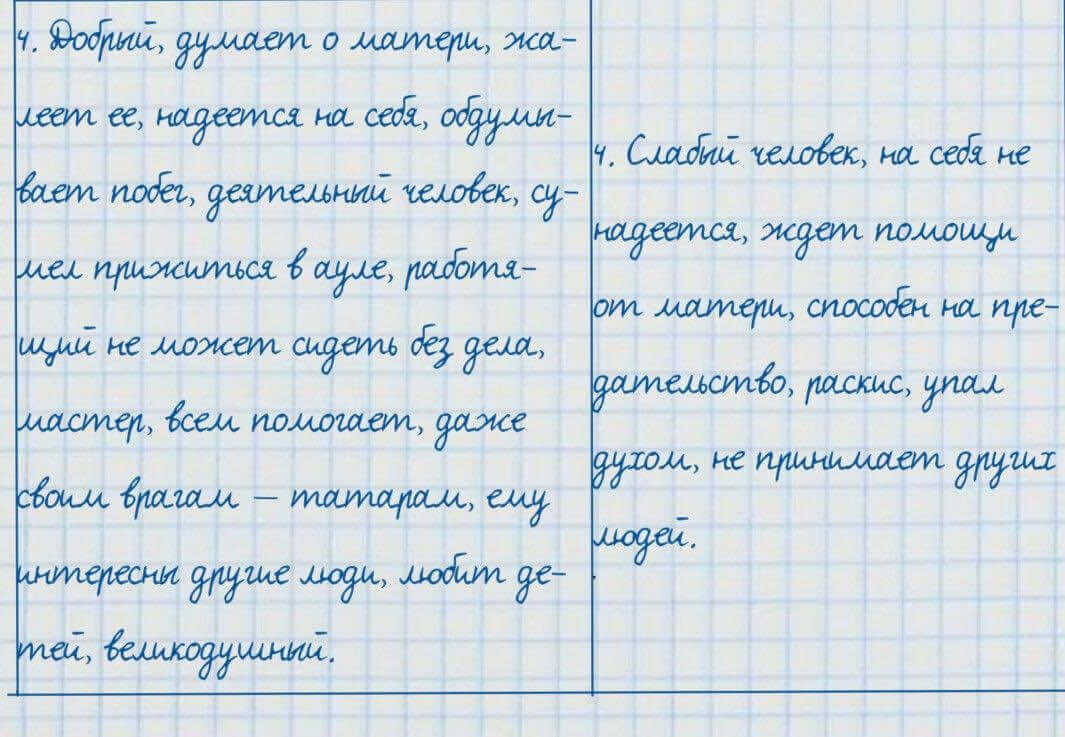 4. Добрый, думает о матери, жа-
леет ее, надеется на себя, обдумы-
вает побег, деятельный человек, су-
мел прижиться в ауле, работя-
щий не может сидеть без дела,
мастер, всем помогает, даже
своим врагам — татарам, ему
интересны другие люди, любит де-
тей, великодушный.
4. Слабый человек, на себя не
надеется, ждет помощи
от матери, способен на пре-
дательство, раскис, упал
духом, не принимает других
людей.